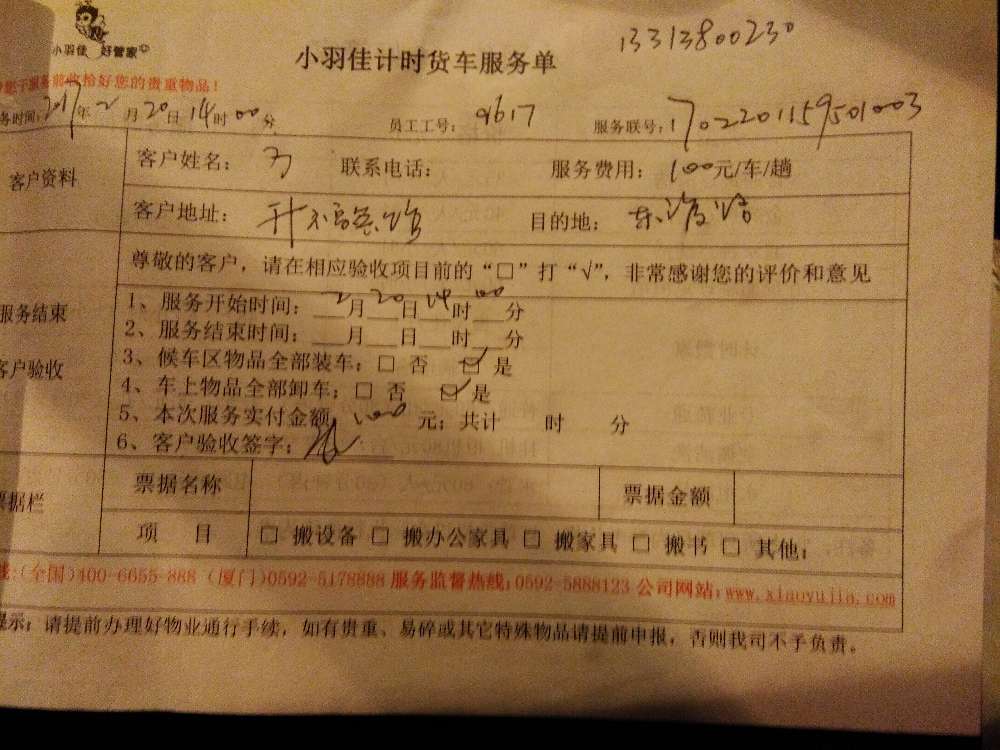 小羽佳 好管家
小羽佳计时货车服务单
13313800230
服务前收恰好您的贵重物品！
务时间：2017年2月20日14时00分 员工工号：9617 服务联号：1702201159501003
客户资料
客户姓名： 联系电话： 服务费用：100元/车/趟
客户地址： 目的地：东渡路
尊敬的客户，请在相应验收项目前的“□”打“√”，非常感谢您的评价和意见
服务结束
客户验收
1、服务开始时间：2月20日14时00分
2、服务结束时间：___月___日___时___分
3、候车区物品全部装车：□ 否 ☑ 是
4、车上物品全部卸车；□ 否 ☑ 是
5、本次服务实付金额 100 元；共计 时 分
6、客户验收签字；
票据栏
票据名称 票据金额
项 目 □ 搬设备 □ 搬办公家具 □ 搬家具 □ 搬书 □ 其他；
线：(全国)400-6655-888 (厦门)0592-5178888 服务监督热线：0592-5888123 公司网站：www.xiaoyujia.com
提示；请提前办理好物业通行手续，如有贵重、易碎或其它特殊物品请提前申报，否则我司不予负责。